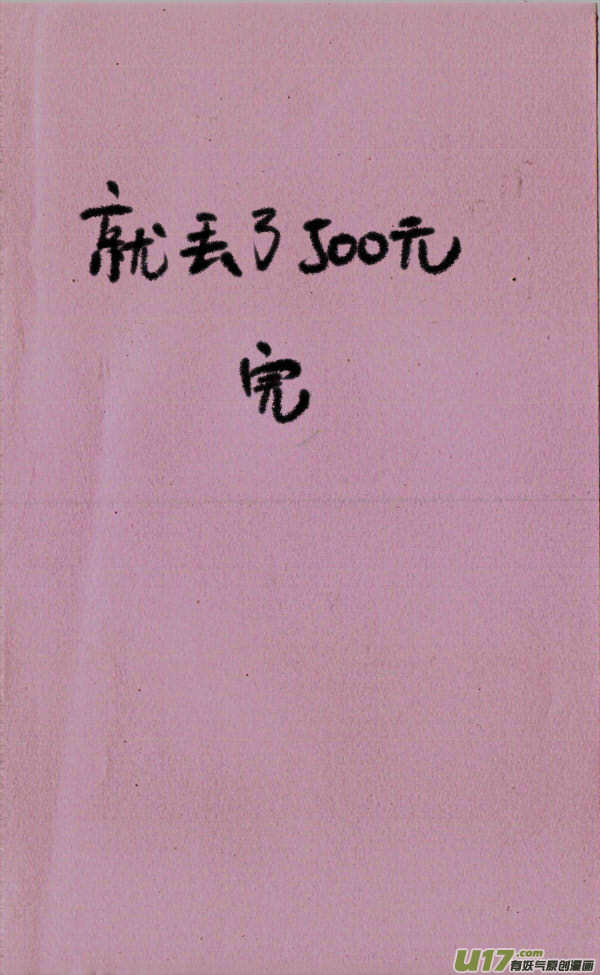 就丢了500元
完
U17.com
有妖气原创漫画